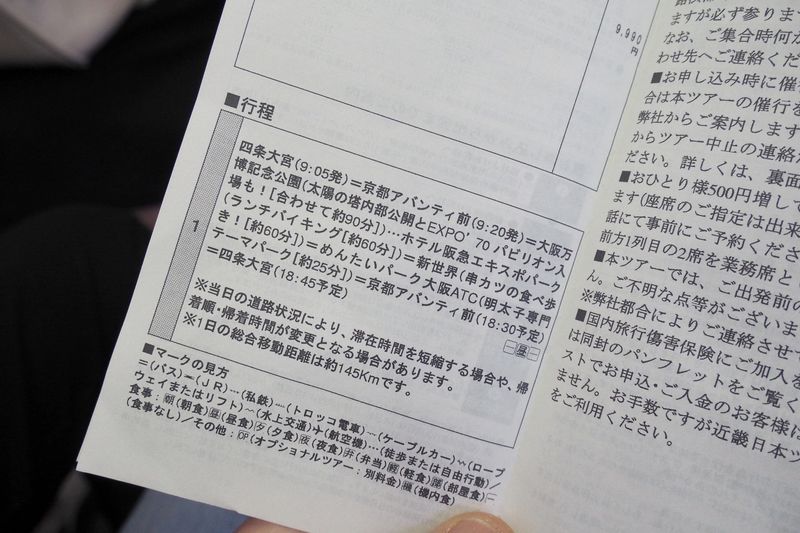 9,990
円
■行程
1
四条大宮(9:05発)=京都アバンティ前(9:20発)=大阪万
博記念公園(太陽の塔内部公開とEXPO'70パビリオン入
場も![合わせて約90分])…ホテル阪急エキスポパーク
(ランチバイキング[約60分])=新世界(串カツの食べ歩
き![約60分])=めんたいパーク大阪ATC(明太子専門
テーマパーク[約25分])=京都アバンティ前(18:30予定)
=四条大宮(18:45予定)
※当日の道路状況により、滞在時間を短縮する場合や、帰
着順・帰着時間が変更となる場合があります。
※1日の総合移動距離は約145Kmです。
昼
■マークの見方
=(バス)
(JR)
(私鉄)
(トロッコ電車)
(ケーブルカー)
(ロープ
ウェイまたはリフト)
(水上交通)
(航空機)…(徒歩または自由行動)/
食事:朝(朝食)昼(昼食)夕(夕食)夜(夜食)弁(弁当)軽(軽食)部(部屋食)
(食事なし)/その他:OP(オプショナルツアー:別料金)機(機内食)
ますが必ず参りま
なお、ご集合時何か
わせ先へご連絡くだ
■お申し込み時に催行
合は本ツアーの催行を
弊社からご案内します
からツアー中止の連絡
ださい。詳しくは、裏面
■おひとり様500円増して
ます(座席のご指定は出来
話にて事前にご予約くださ
前方1列目の2席を業務席と
■本ツアーでは、ご出発前の
ん。ご不明な点等がございま
※弊社都合によりご連絡させて
■国内旅行傷害保険にご加入を
は同封のパンフレットをご覧く
ストでお申込・ご入金のお客様に
ません。お手数ですが近畿日本ツ
をご利用ください。